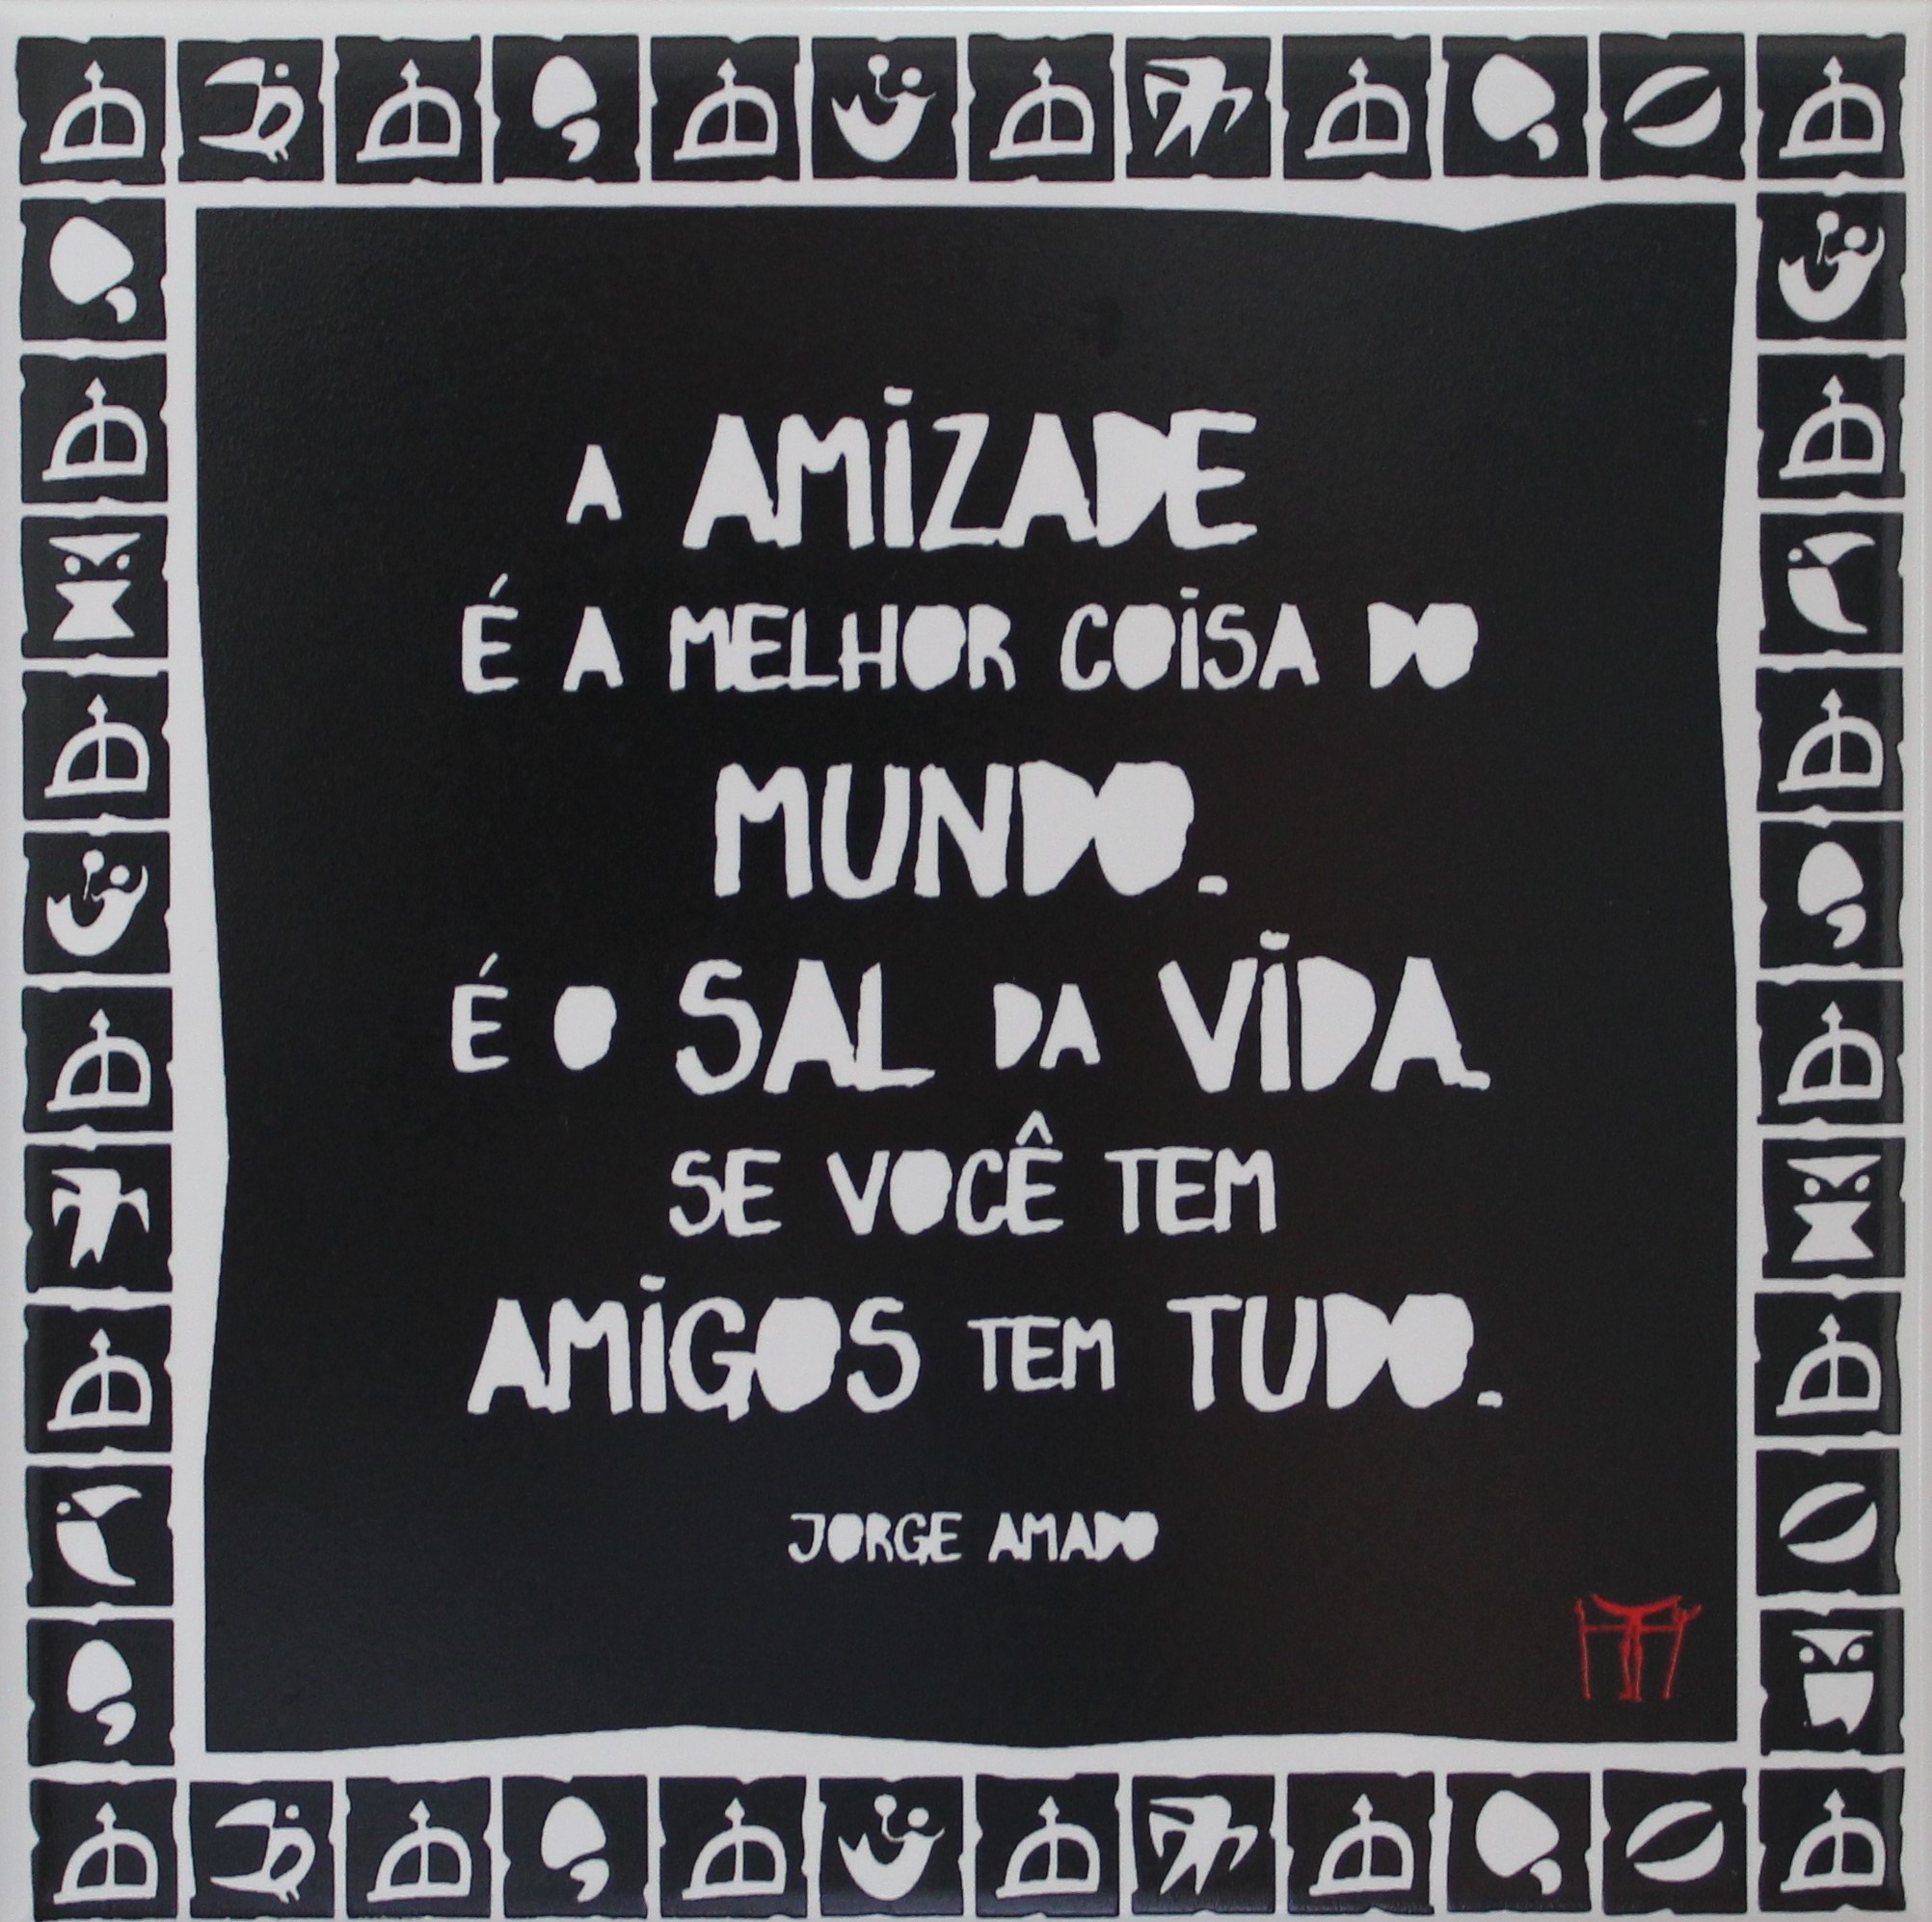 A AMIZADE
É A MELHOR COISA DO
MUNDO.
É O SAL DA VIDA.
SE VOCÊ TEM
AMIGOS TEM TUDO.
JORGE AMADO